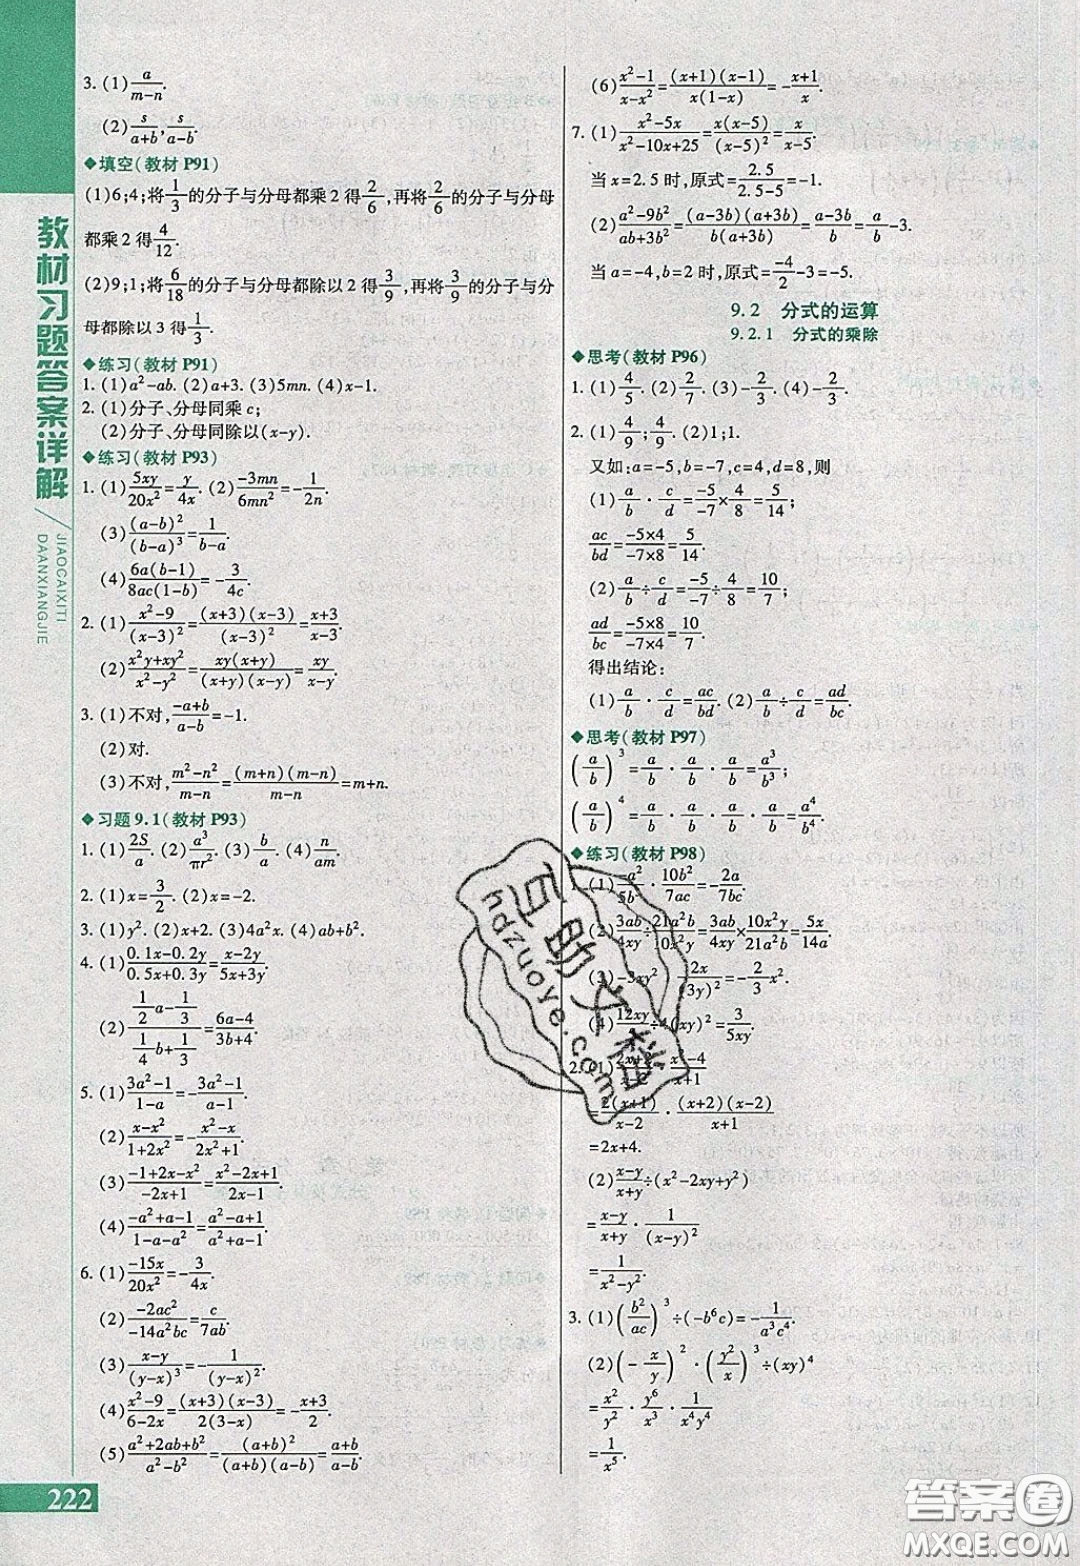 教材习题答案详解
JIAOCAIXITI
DAANXIANGJIE
3. (1) a/(m-n).
(2) s/(a+b), s/(a-b).
◆填空(教材 P91)
(1)6;4;将1/3的分子与分母都乘2得2/6,再将2/6的分子与分母
都乘2得4/12.
(2)9;1;将6/18的分子与分母都除以2得3/9,再将3/9的分子与分
母都除以3得1/3.
◆练习(教材 P91)
1. (1)a²-ab. (2)a+3. (3)5mn. (4)x-1.
2. (1)分子、分母同乘c;
(2)分子、分母同除以(x-y).
◆练习(教材 P93)
1. (1) 5xy/20x² = y/4x. (2) -3mn/6mn² = -1/2n.
(3) (a-b)²/(b-a)³ = 1/(b-a).
(4) 6a(b-1)/8ac(1-b) = -3/4c.
2. (1) (x²-9)/(x-3)² = (x+3)(x-3)/(x-3)² = (x+3)/(x-3).
(2) (x²y+xy²)/(x²-y²) = xy(x+y)/(x+y)(x-y) = xy/(x-y).
3. (1)不对, (-a+b)/(a-b) = -1.
(2)对.
(3)不对, (m²-n²)/(m-n) = (m+n)(m-n)/(m-n) = m+n.
◆习题 9.1(教材 P93)
1. (1) 2S/a. (2) a³/πr². (3) b/a. (4) n/am.
2. (1)x=3/2. (2)x=-2.
3. (1)y². (2)x+2. (3)4a²x. (4)ab+b².
4. (1) (0.1x-0.2y)/(0.5x+0.3y) = (x-2y)/(5x+3y).
(2) (1/2 a-1/3)/(1/4 b+1/3) = (6a-4)/(3b+4).
5. (1) (3a²-1)/(1-a) = -(3a²-1)/(a-1).
(2) (x-x²)/(1+2x²) = -(x²-x)/(2x²+1).
(3) (-1+2x-x²)/(-2x+1) = (x²-2x+1)/(2x-1).
(4) (-a²+a-1)/(1-a-a²) = (a²-a+1)/(a²+a-1).
6. (1) -15x/20x² = -3/4x.
(2) -2ac²/-14a²bc = c/7ab.
(3) (x-y)/(y-x)³ = -1/(y-x)².
(4) (x²-9)/(6-2x) = (x+3)(x-3)/2(3-x) = -(x+3)/2.
(5) (a²+2ab+b²)/(a²-b²) = (a+b)²/(a+b)(a-b) = (a+b)/(a-b).
222
(6) (x²-1)/(x-x²) = (x+1)(x-1)/x(1-x) = -(x+1)/x.
7. (1) (x²-5x)/(x²-10x+25) = x(x-5)/(x-5)² = x/(x-5).
当x=2.5时,原式=2.5/(2.5-5)=-1.
(2) (a²-9b²)/(ab+3b²) = (a-3b)(a+3b)/b(a+3b) = (a-3b)/b = a/b-3.
当a=-4,b=2时,原式=-4/2-3=-5.
9.2 分式的运算
9.2.1 分式的乘除
◆思考(教材 P96)
1. (1) 4/5. (2) 2/7. (3) -2/3. (4) -2/3.
2. (1) 4/9; 4/9. (2)1;1.
又如:a=-5,b=-7,c=4,d=8,则
(1) a/b · c/d = -5/-7 × 4/8 = 5/14;
ac/bd = (-5×4)/(-7×8) = 5/14.
(2) a/b ÷ c/d = -5/-7 ÷ 4/8 = 10/7;
ad/bc = (-5×8)/(-7×4) = 10/7.
得出结论:
(1) a/b · c/d = ac/bd. (2) a/b ÷ c/d = ad/bc.
◆思考(教材 P97)
(a/b)³ = a/b · a/b · a/b = a³/b³;
(a/b)⁴ = a/b · a/b · a/b · a/b = a⁴/b⁴.
◆练习(教材 P98)
1. (1) -a²/5b³ · 10b²/7ac = -2a/7bc.
(2) 3ab/4xy ÷ 21a²b/10x²y = 3ab/4xy × 10x²y/21a²b = 5x/14a.
(3) -3xy² · 2x/(3y)² = -2/3 x².
(4) 12xy/5 ÷ 4(xy)² = 3/5xy.
2. (1) (2x+2)/(x-2) · (x²-4)/(x+1)
= 2(x+1)/(x-2) · (x+2)(x-2)/(x+1)
=2x+4.
(2) (x-y)/(x+y) ÷ (x²-2xy+y²)
= (x-y)/(x+y) · 1/(x-y)²
= 1/(x²-y²).
3. (1) (b²/ac)³ ÷ (-b⁶c) = -1/a³c⁴.
(2) (-x/y)² · (y²/x)³ ÷ (xy)⁴
= x²/y² · y⁶/x³ · 1/x⁴y⁴
= 1/x⁵.
百助文档
hdzuoye.com
答案圈
MXQE.COM